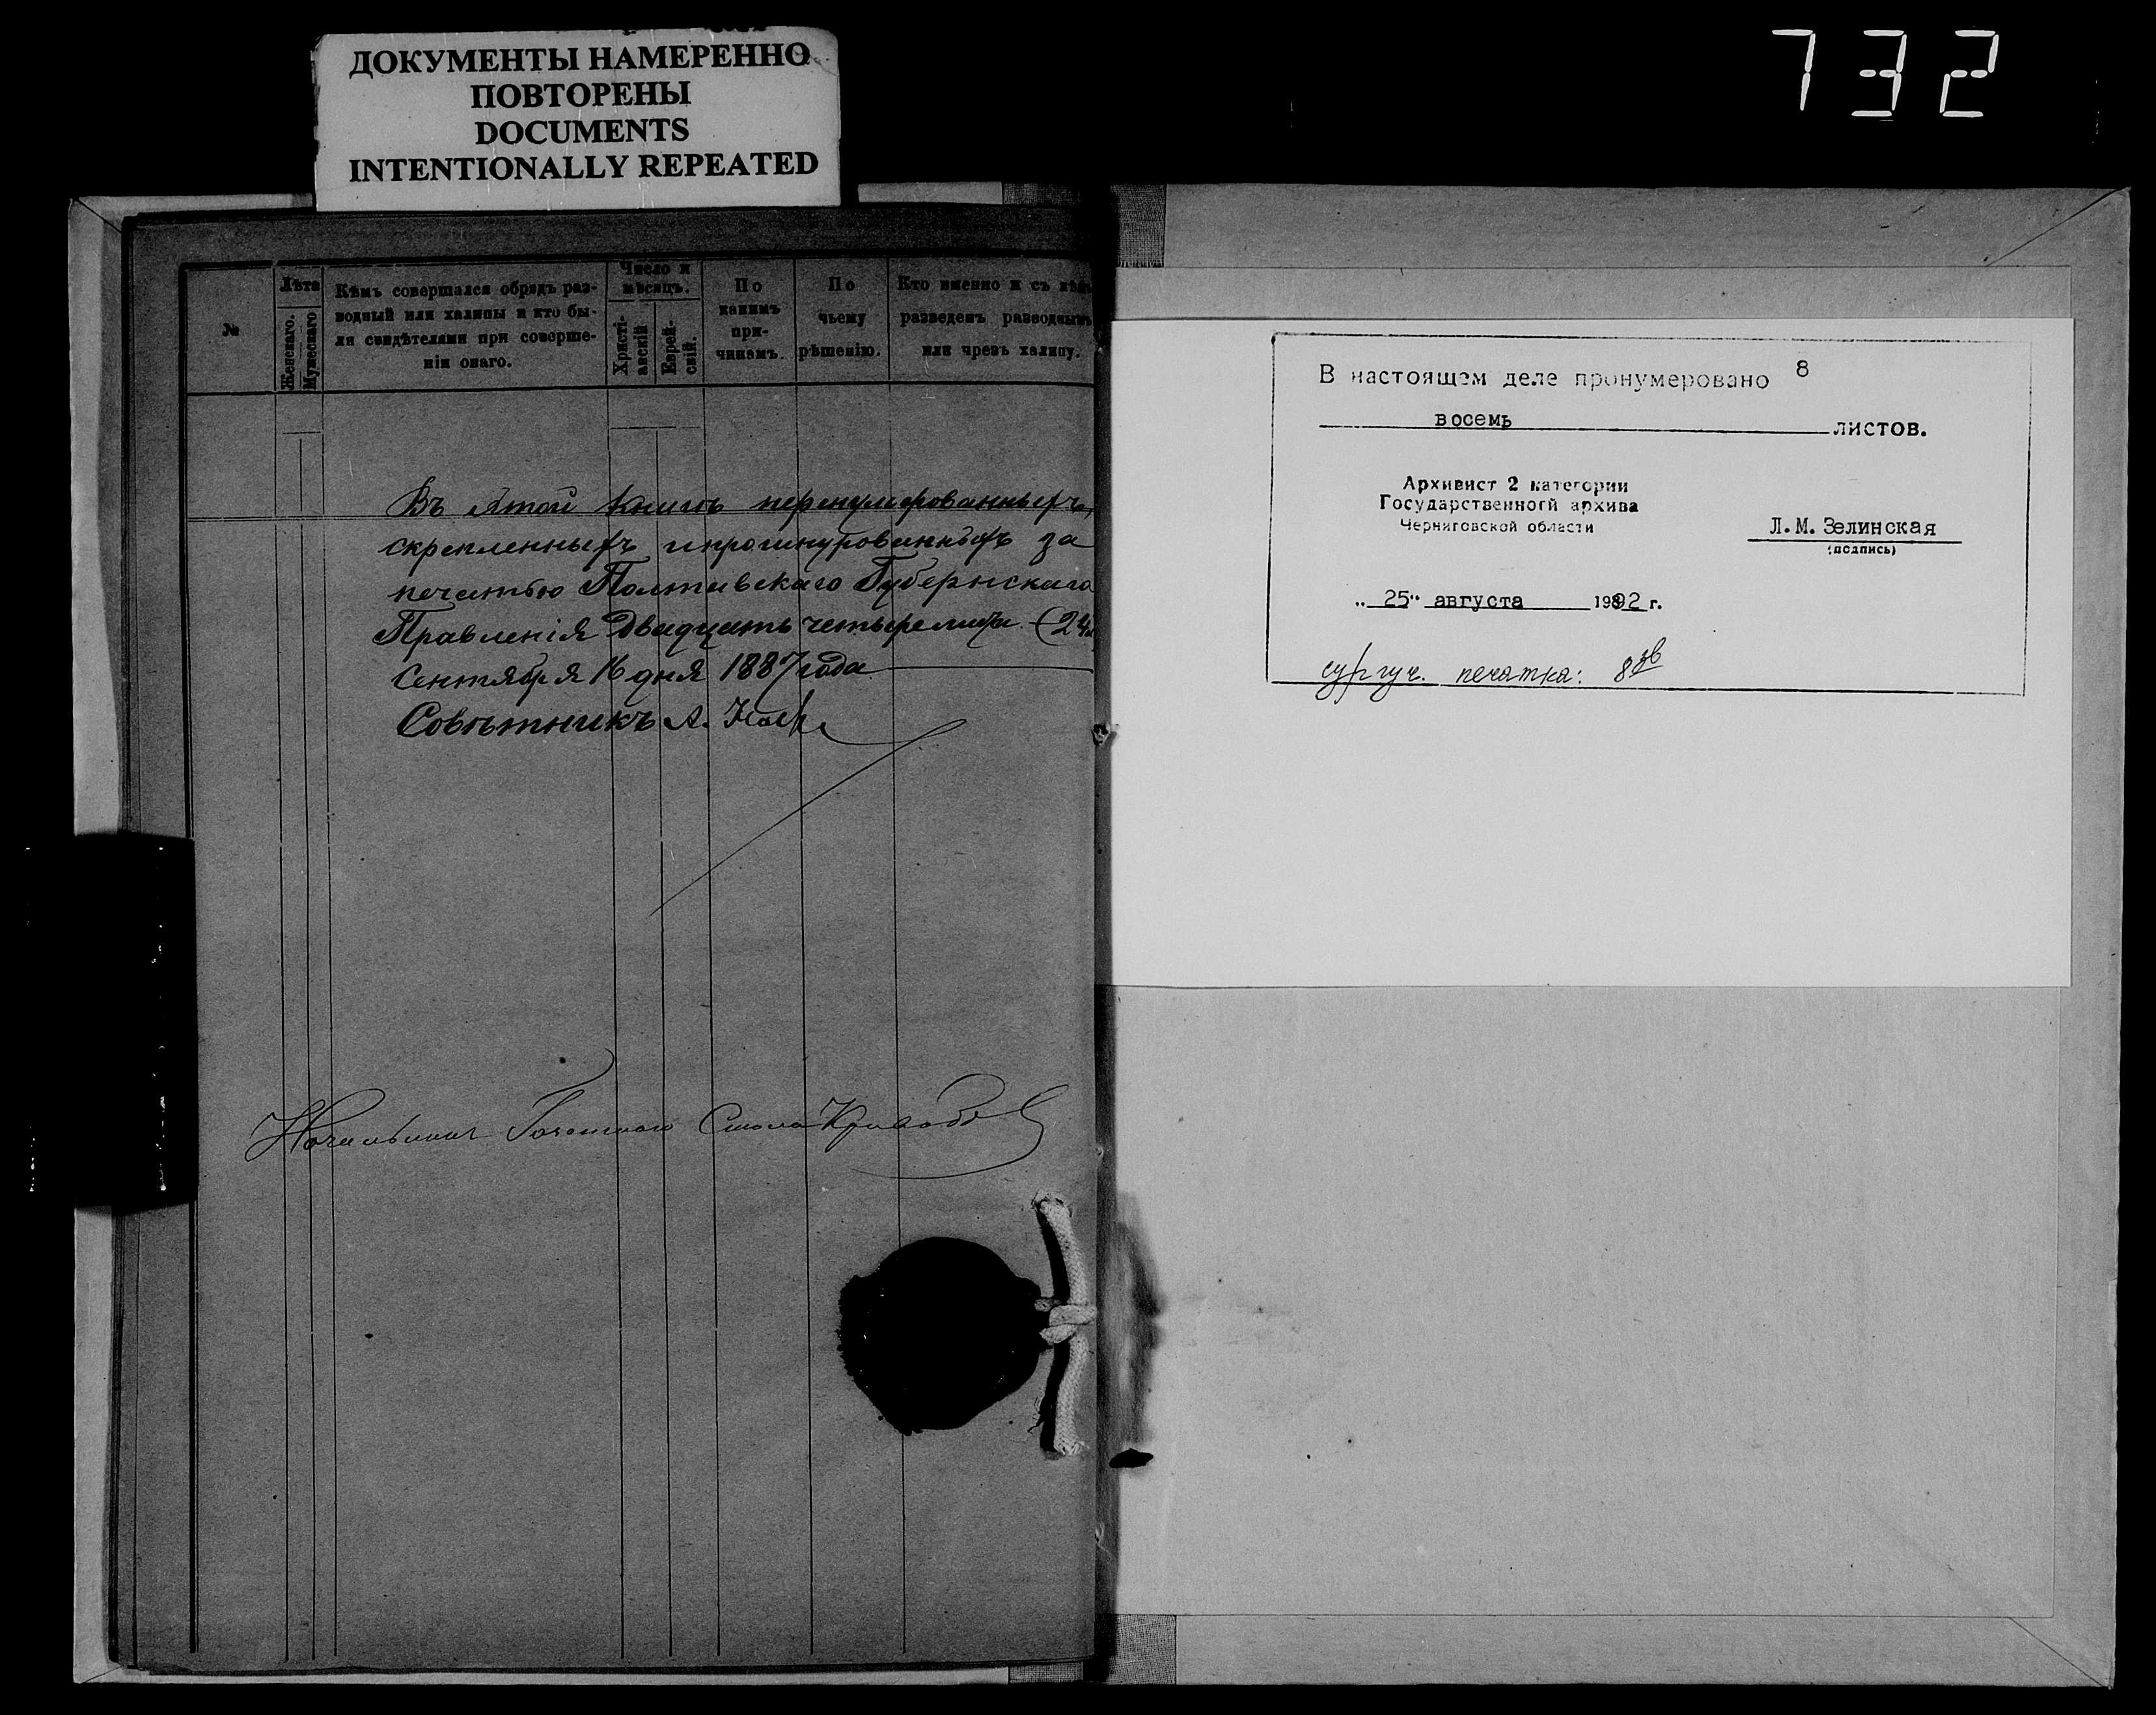 ДОКУМЕНТЫ НАМЕРЕННО
ПОВТОРЕНЫ
DOCUMENTS
INTENTIONALLY REPEATED
732
№
Лѣта
Женскаго.
Мужескаго
Кѣмъ совершался обрядъ раз-
водный или халицы и кто бы-
ли свидѣтелями при соверше-
ніи онаго.
Число и
мѣсяцъ.
Христі-
анскій
Еврей-
скій.
По
какимъ
при-
чинамъ.
По
чьему
рѣшенію.
Кто именно и съ кѣмъ
разведенъ разводнымъ
или чрезъ халицу.
Въ этой книгѣ перенумерованныхъ,
скрепленныхъ и прошнурованныхъ за
печатью Полтавскаго Губернскаго
Правленія двадцать четыре листа (24
Сентября 16 дня 1887 года
Совѣтникъ А.
Начальникъ Стола
В настоящем деле пронумеровано 8
восемь листов.
Архивист 2 категории
Государственногй архива
Черниговской области
Л.М.Зелинская
(подпись)
„ 25" августа 1992 г.
сургуч. печатка: 8 зв